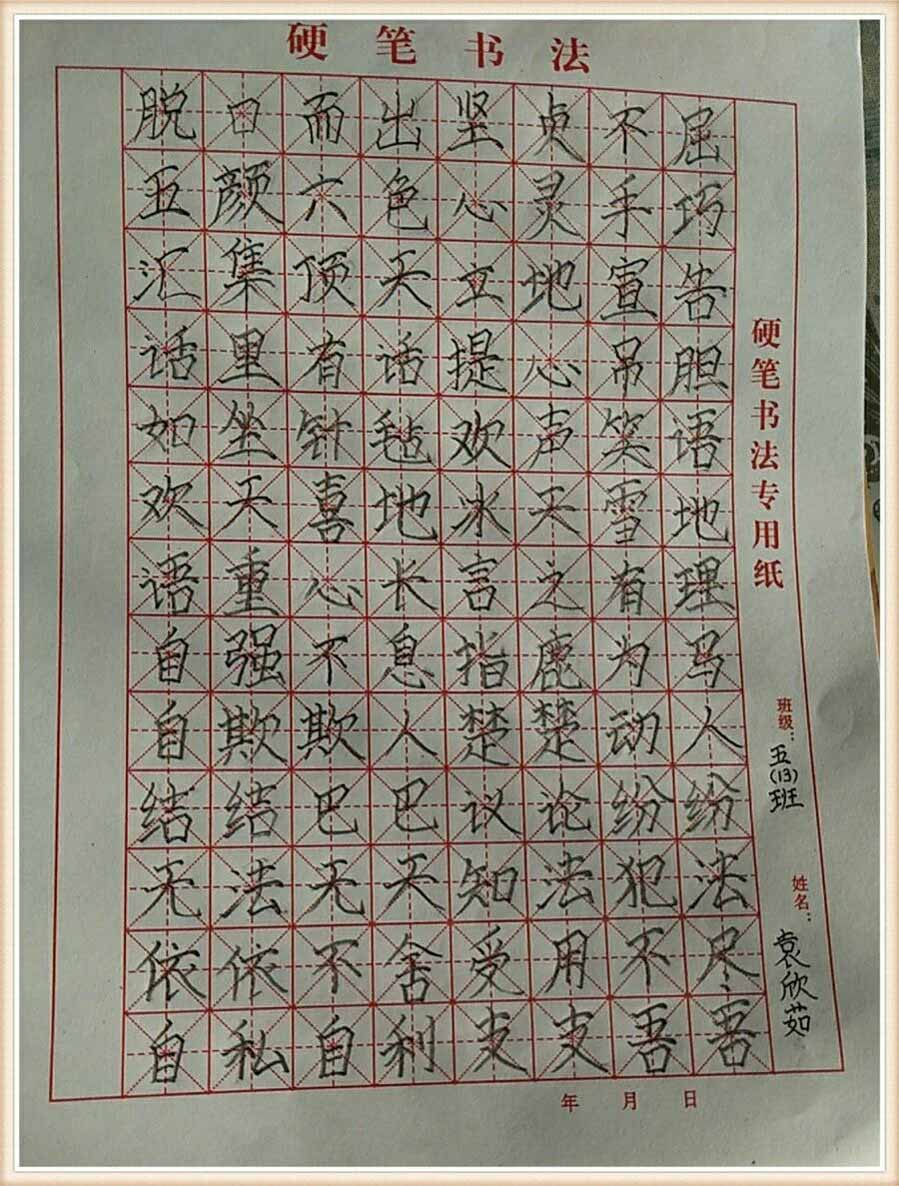 硬笔书法
脱口而出坚贞不屈
五颜六色心灵手巧
汇集顶天立地宣告
话里有话提心吊胆
如坐针毡欢声笑语
欢天喜地冰天雪地
语重心长言之有理
自强不息指鹿为马
自欺欺人楚楚动人
结结巴巴议论纷纷
无法无天知法犯法
依依不舍受用不尽
自私自利支支吾吾
硬笔书法专用纸
班级：五(13)班
姓名：袁欣茹
年 月 日